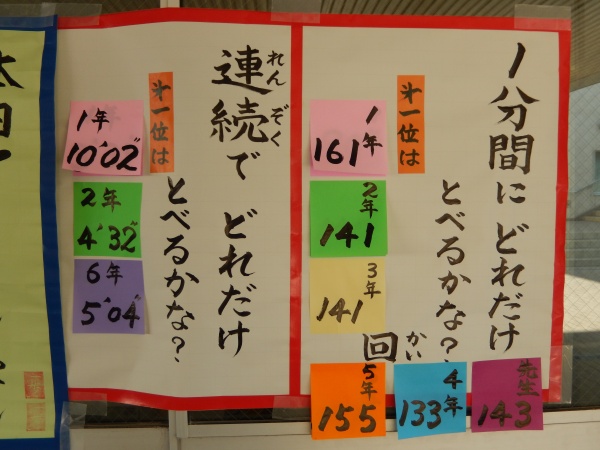 1分間に どれだけ
とべるかな?
回
かい
㐧一位は
1年
161
2年
141
3年
141
5年
155
4年
133
先生
143
連続で どれだけ
れん ぞく
とべるかな?
㐧一位は
1年
10'02"
2年
4'32"
6年
5'04"